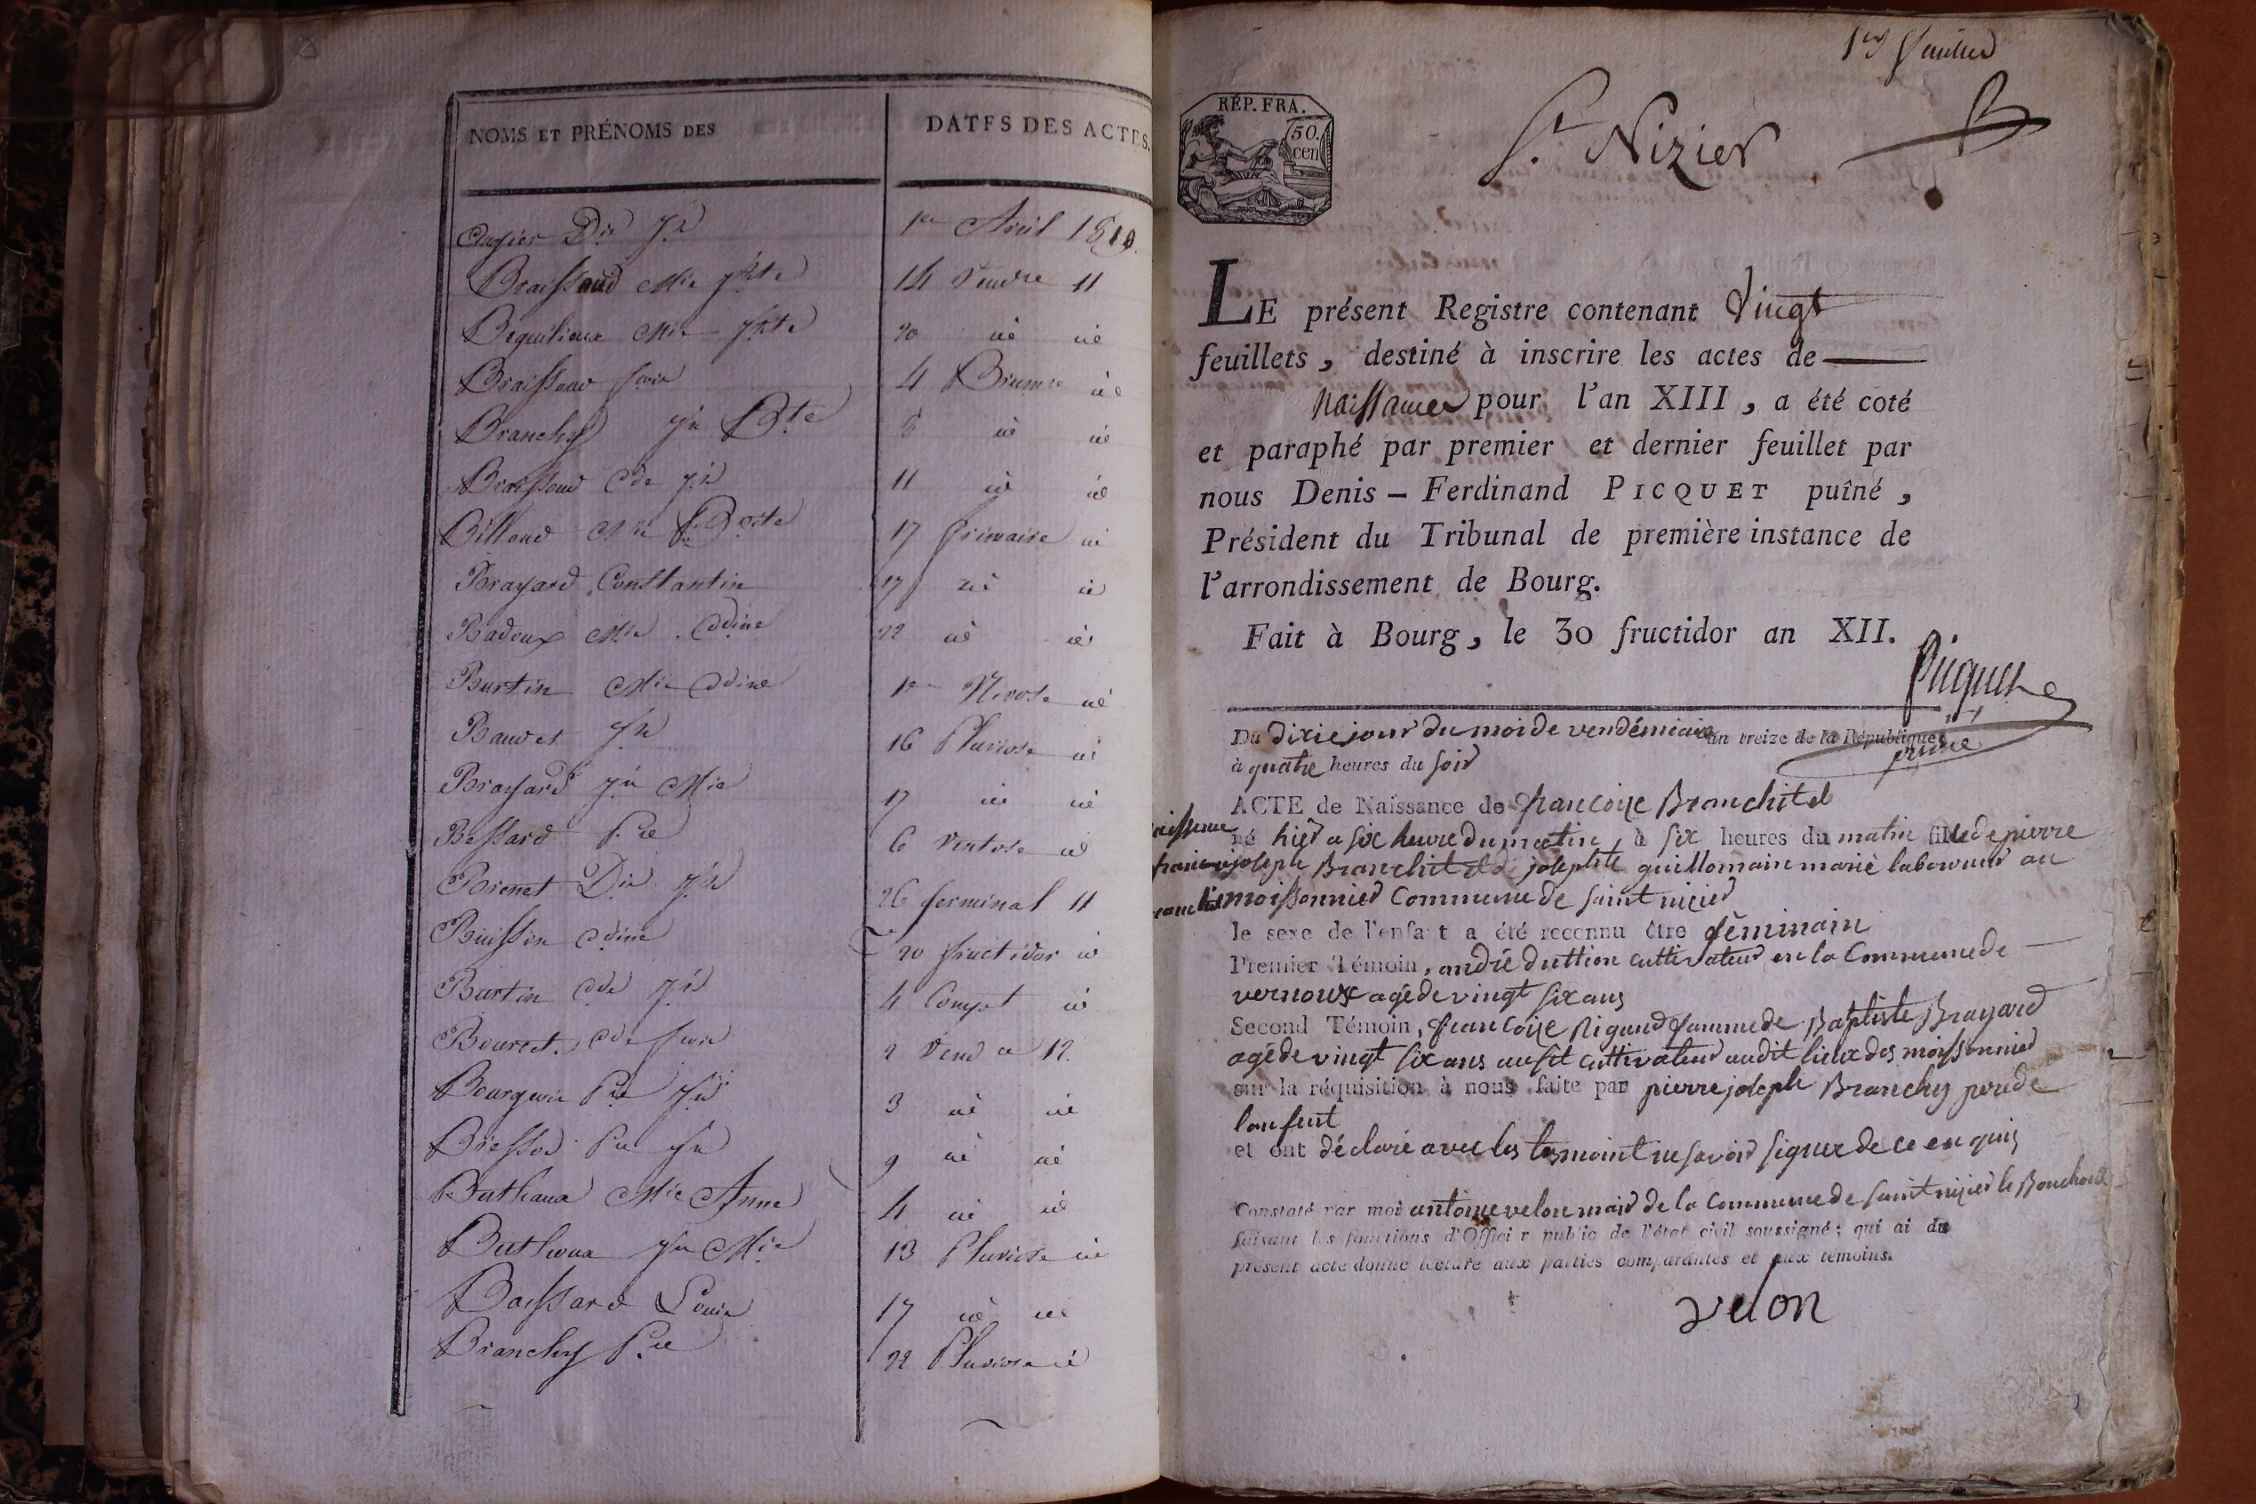 NOMS ET PRÉNOMS DES
DATES DES ACTES.
1er Avril 1810.
Braissaud Mie Jhte
14 Vendre 11
Mie Jhte
20 id id
4 Brumre id
Branchy Jn Bte
8 id id
Cde Jh
11 id id
Billaud
17 frimaire id
Brayard Constantin
17 id id
Badoux Mie Cdine
22 id id
Burtin Mie Cdine
1er Nivose id
Bauvet Jh
16 Pluviose id
Brayard Jn Mie
17 id id
Bessard P.re
6 Ventose id
Dis Jh
26 Germinal 11
Buisson Cdine
20 fructidor id
Burtin Cde Jh
4 Compt id
Cde
2 Vend re 12.
P.re Jh
3 id id
9 id id
Buthoux Mie Anne
4 id id
Buthoux Jn Mie
13 Pluviose id
Baissard Louis
17 id id
Branchy P.re
22 Pluviose id
1er feuillet
St Nizier
RÉP. FRA.
50.
cen
LE présent Registre contenant Vingt
feuillets, destiné à inscrire les actes de
Naissances pour l'an XIII, a été coté
et paraphé par premier et dernier feuillet par
nous Denis – Ferdinand PICQUET puîné,
Président du Tribunal de première instance de
l'arrondissement de Bourg.
Fait à Bourg, le 30 fructidor an XII.
Picquet
puiné
Du dixie jour du moi de vendémiaire an treize de la République
à quatre heures du soir
ACTE de Naissance de francoise Branchit
né hier a six heure du matin, à six heures du matin fille de pierre
joseph Branchit josephte guillomain marié laboureur au
moissonnier Commune de saint nizier
le sexe de l'enfant a été reconnu être féminain
Premier Témoin, andré duttion cultivateur en la Commune de
vernoux agé de vingt six ans
Second Témoin, francoise Rigaud famme de Baptiste Brayard
agé de vingt six ans ausit cultivateur audit lieux des moissonnier
sur la réquisition à nous faite par pierre joseph Branchy perre de
lanfent
et ont déclaré avec les tesmoint ne savoir signer de ce enquis
Constaté par moi antoine velon mair de la Commune de saint nizier le Bouchoux
suivant les fonctions d'Officier public de l'état civil soussigné; qui ai du
présent acte donné lecture aux parties comparantes et aux témoins.
velon